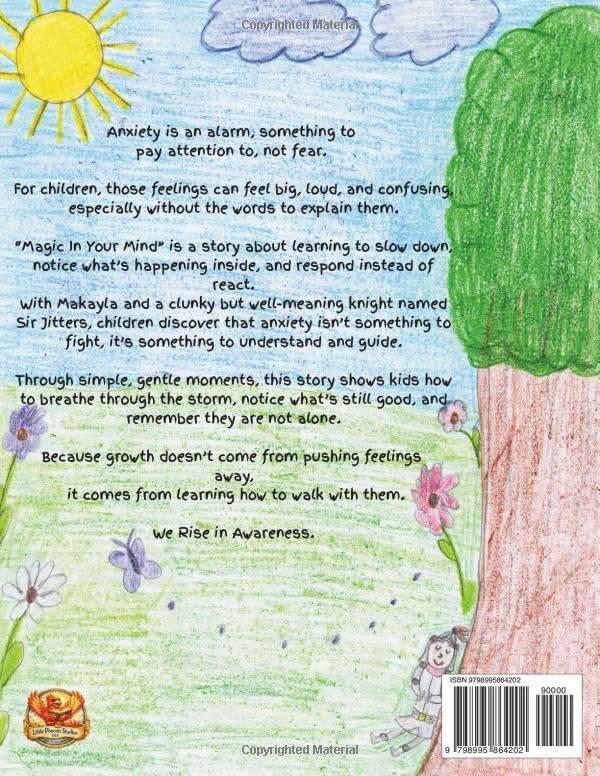 Copyrighted Material
Anxiety is an alarm, something to
pay attention to, not fear.
For children, those feelings can feel big, loud, and confusing,
especially without the words to explain them.
"Magic In Your Mind" is a story about learning to slow down,
notice what's happening inside, and respond instead of
react.
With Makayla and a clunky but well-meaning knight named
Sir Jitters, children discover that anxiety isn't something to
fight, it's something to understand and guide.
Through simple, gentle moments, this story shows kids how
to breathe through the storm, notice what's still good, and
remember they are not alone.
Because growth doesn't come from pushing feelings
away,
it comes from learning how to walk with them.
We Rise in Awareness.
ISBN 9798995864202
90000
9 798995 864202
Little Phoenix Studios
LLC
Copyrighted Material